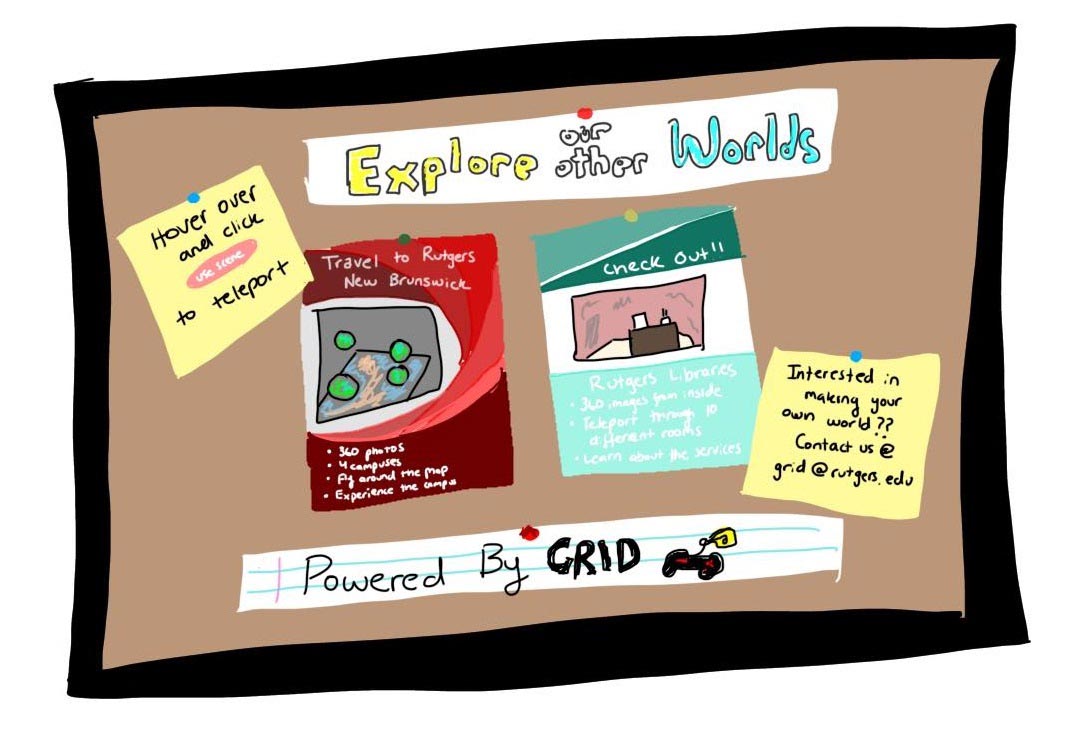 Explore our other Worlds
Hover over
and click
use scene
to teleport
Travel to Rutgers
New Brunswick
• 360 photos
• 4 campuses
• Fly around the map
• Experience the campus
Check Out!!
Rutgers Libraries
• 360 images from inside
• Teleport through 10
different rooms
• Learn about the services
Interested in
making your
own world??
Contact us @
grid@rutgers.edu
Powered By GRID